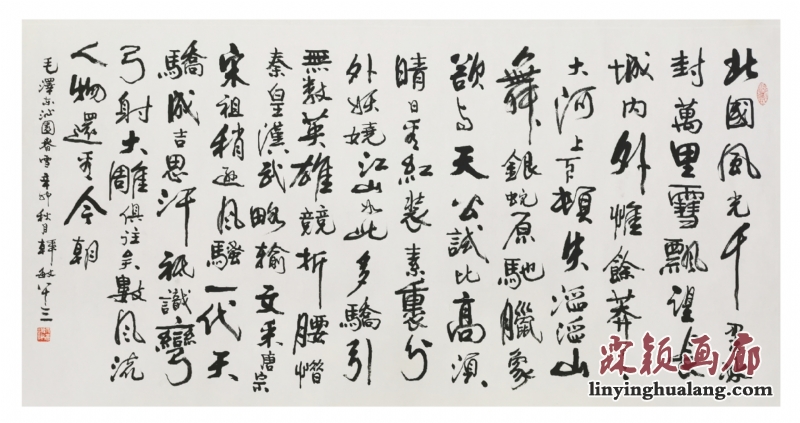 北國風光千里冰
封萬里雪飄望長
城内外惟餘莽莽
大河上下頓失滔滔山
舞銀蛇原馳臘象
欲与天公試比高須
晴日看紅裝素裹分
外妖嬈江山如此多驕引
無數英雄競折腰惜
秦皇漢武略輸文采唐宗
宋祖稍遜風騷一代天
驕成吉思汗祗識彎
弓射大雕俱往矣數風流
人物還看今朝
毛澤東沁園春雪辛卯秋月韓敏八十三
霖颖画廊
linyinghualang.com